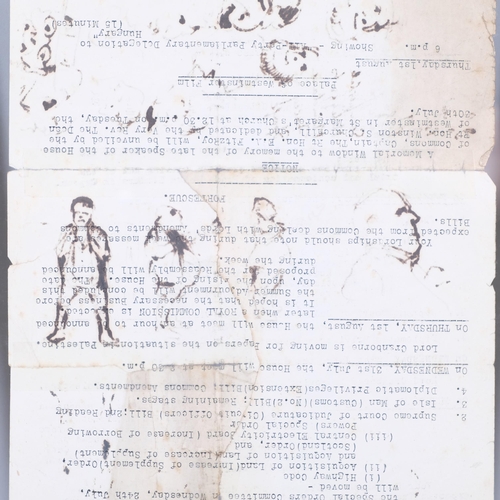 the Special Orders Committee on Wednesday 24th July,
will be moved -
(i) Highway Code
(ii) Acquisition of Land (Increase of Supplement) Order,
and Acquisition of Land (Increase of Supplement)
(Scotland) Order, and
(iii) Central Electricity Board (Increase of Borrowing
Powers) Special Order
2. Supreme Court of Judicature (Circuit Officers) Bill; 2nd Reading
3. Isle of Man (Customs)(No.2)Bill; Remaining stages
4. Diplomatic Privileges (Extension)Bill; Commons Amendments
On WEDNESDAY, 31st July, the House will meet at p.m.
Lord Cranborne is moving for Papers on the situation in Palestine.
On THURSDAY, 1st August, the House will meet at an hour to be announced
later when a ROYAL COMMISSION is expected.
It is hoped that the necessary business before
the Summer Adjournment will be concluded this
day, and the rising of the House. The date
proposed for the Reassembly will be announced
during the week
Your Lordships should note that during the week messages are
expected from the Commons dealing with Lords Amendments to
Bills.
FORTESCUE.
NOTICE
A Memorial Window to the memory of the late Speaker of the House
of Commons, Captain The Rt. Hon. E. A. Fitzroy, will be unveiled by the
Rt. Hon. Winston S. Churchill, and dedicated by the Very Rev. The Dean
of Westminster in St Margaret's Church at 12.30 p.m. on Tuesday, the
30th July.
Palace of Westminster Film
Thursday, 1st August
6 p.m. Showing Party Parliamentary Delegation to
Hungary"
(15 Minutes)